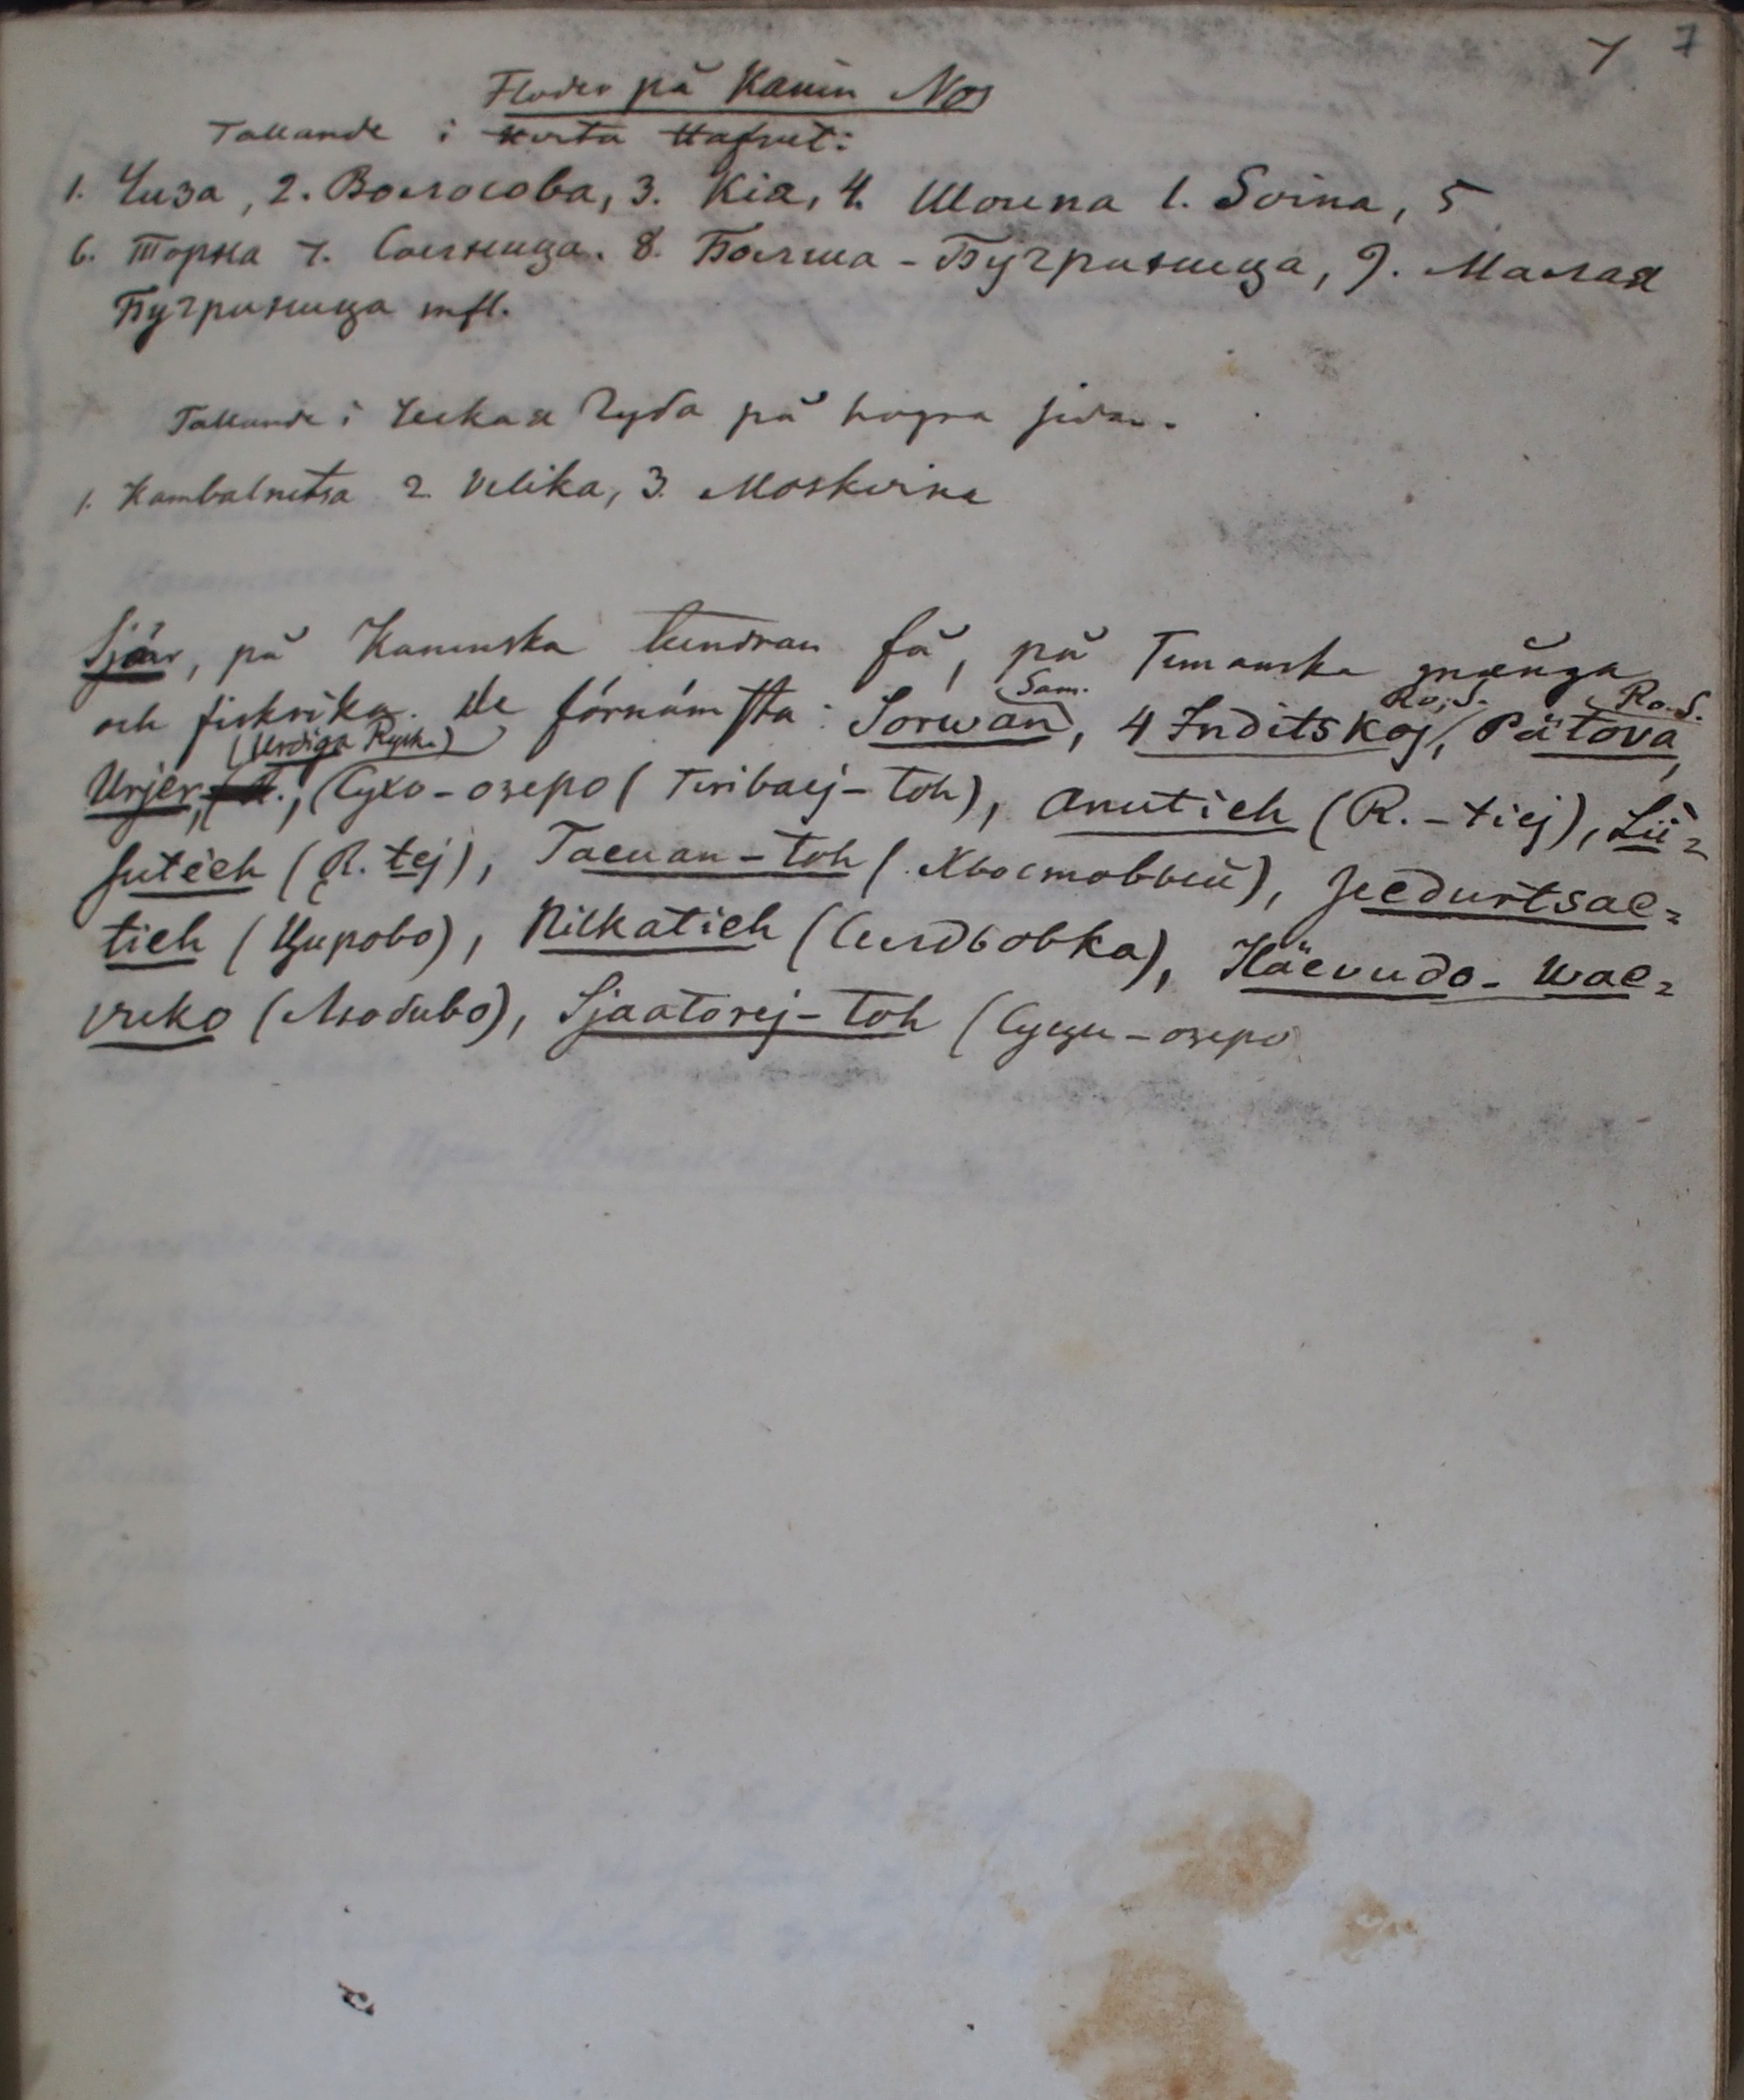 7 7
Floder på Kanin Nos
Fallande i hvita Hafvet:
1. Чиза, 2. Волосова, 3. Кia, 4. Шойна l. Soina, 5
6. Торна 7. Салница. 8. Болша-Бугрината, 9. Малая
Бугриница mfl.
Fallande i Ческая Губа på högra sidan.
1. Kambalnitsa 2. Velika, 3. Moskvina
Sjöar, på Kaninska tundran få, på Timanska många
och fiskrika. De förnämsta: Sorwan (Sam.), 4 Inditskoj (Ro. S.), Pätova (Ro. S.),
Urjer, (Urdiga Rysk.), Сухо-озеро (Tiribaej-toh), Anutieh (R. -tiej), Lii=
sutéeh (R. tej), Taewan-toh (Хвостовый), Jeedurtsae=
tieh (Цирово), Nilkatieh (Силдвовка), Häevudo-Wae=
sreko (Людиво), Sjaatorej-toh (Сущи-озеро